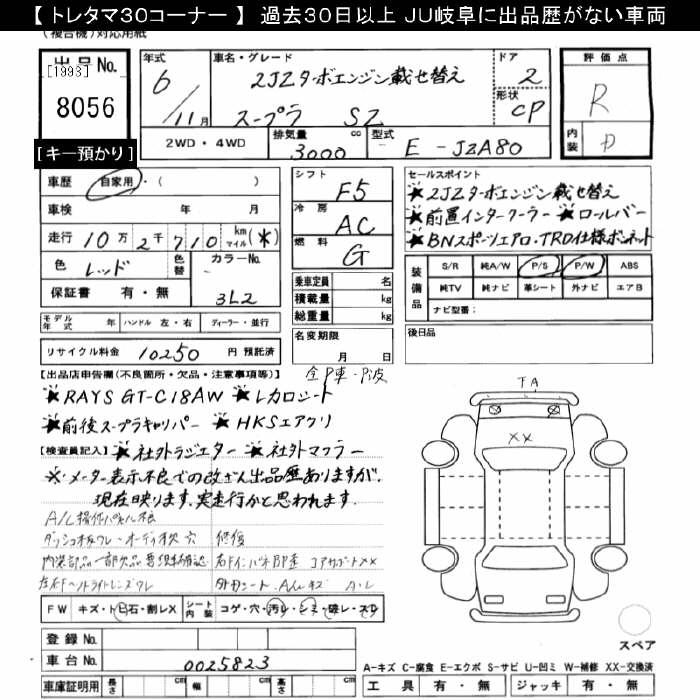 【 トレタマ30コーナー 】 過去30日以上 JU岐阜に出品歴がない車両
(複合機)対応用紙
出品No.
[1993]
8056
[キー預かり]
年式
6/11月
車名・グレード
2JZターボエンジン載せ替え
スープラ SZ
ドア
2
形状
CP
2WD・4WD
排気量
3000 cc
型式
E - JZA80
評価点
R
内装
D
車歴 自家用・( )
車検 年 月
走行 10万2千710 km マイル (*)
色 レッド
色替
カラーNo.
3L2
保証書 有・無
シフト
F5
冷房
AC
燃料
G
乗車定員 名
積載量 kg
総重量 kg
セールスポイント
★2JZターボエンジン載せ替え
★前置インタークーラー ★ロールバー
★BNスポーツエアロ・TRD仕様ボンネット
装備品
S/R 純A/W P/S P/W ABS
純TV 純ナビ 革シート 外ナビ エアB
ナビ型番:
モデル年式 年 ハンドル 左・右 ディーラー・並行
名変期限
月 日
後日品
リサイクル料金 10250 円 預託済
【出品店申告欄(不良箇所・欠品・注意事項等)】
★RAYS GT-C18AW ★レカロシート
★前後スープラキャリパー ★HKSエアクリ
【検査員記入】 ★社外ラジエター ★社外マフラー
※メーター表示不良での改ざん出品歴ありますが、
現在映ります。実走行かと思われます。
ダッシュ
修復
FW キズ・トビ石・割レX
シート内装 コゲ・穴・汚レ・シミ・破レ・スレ
TA
XX
登録No.
車台No. 0025823
スペア
A-キズ C-腐食 E-エクボ S-サビ U-凹ミ W-補修 XX-交換済
車庫証明用 長さ cm 幅 cm 高さ cm
工具 有・無 ジャッキ 有・無